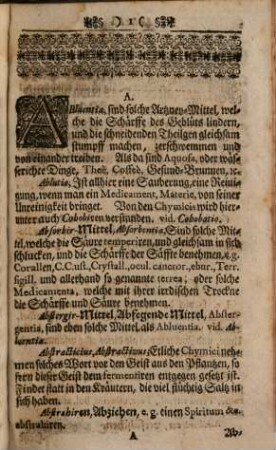 ) 1 (
A.
Abluentia, sind solche Artzney-Mittel, wel-
che die Schärffe des Geblüts lindern,
und die schneidenden Theilgen gleichsam
stumpff machen, zerschwemmen und
von einander treiben. Als da sind Aquosa, oder wäs-
serichte Dinge, Theé, Coffeé, Gesund-Brunnen, ꝛc.
Ablutio, Ist allhier eine Säuberung, eine Reini-
gung, wenn man ein Medicament, Materie, von seiner
Unreinigkeit bringet. Von den Chymicis wird hier-
unter auch Cohobiren verstanden. vid. Cohobatio.
Absorbir-Mittel, Absorbentia, Sind solche Mit-
tel, welche die Säure temperiren, und gleichsam in sich
schlucken, und die Schärffe der Säffte benehmen, e.g.
Corallen, C.C. ust, Crystall, ocul. cancror, ebur, Terr.
sigill. und allerhand so genannte terrea, oder solche
Medicamenta, welche mit ihrer irrdischen Trockne
die Schärffe und Säure benehmen.
Abstergir-Mittel, Abfegende Mittel, Abster-
gentia, sind eben solche Mittel, als Abluentia. vid. Ab-
luentia.
Abstractitius, Abstractivus, Etliche Chymici neh-
men solches Wort vor den Geist aus den Pflantzen, so
fern dieser Geist dem fermentirten entgegen gesetzt ist.
Findet statt in den Kräutern, die viel flüchtig Saltz in
sich haben.
Abstrahiren, Abziehen, e.g. einen Spiritum &c.
abstrahiren.
A
Ab-